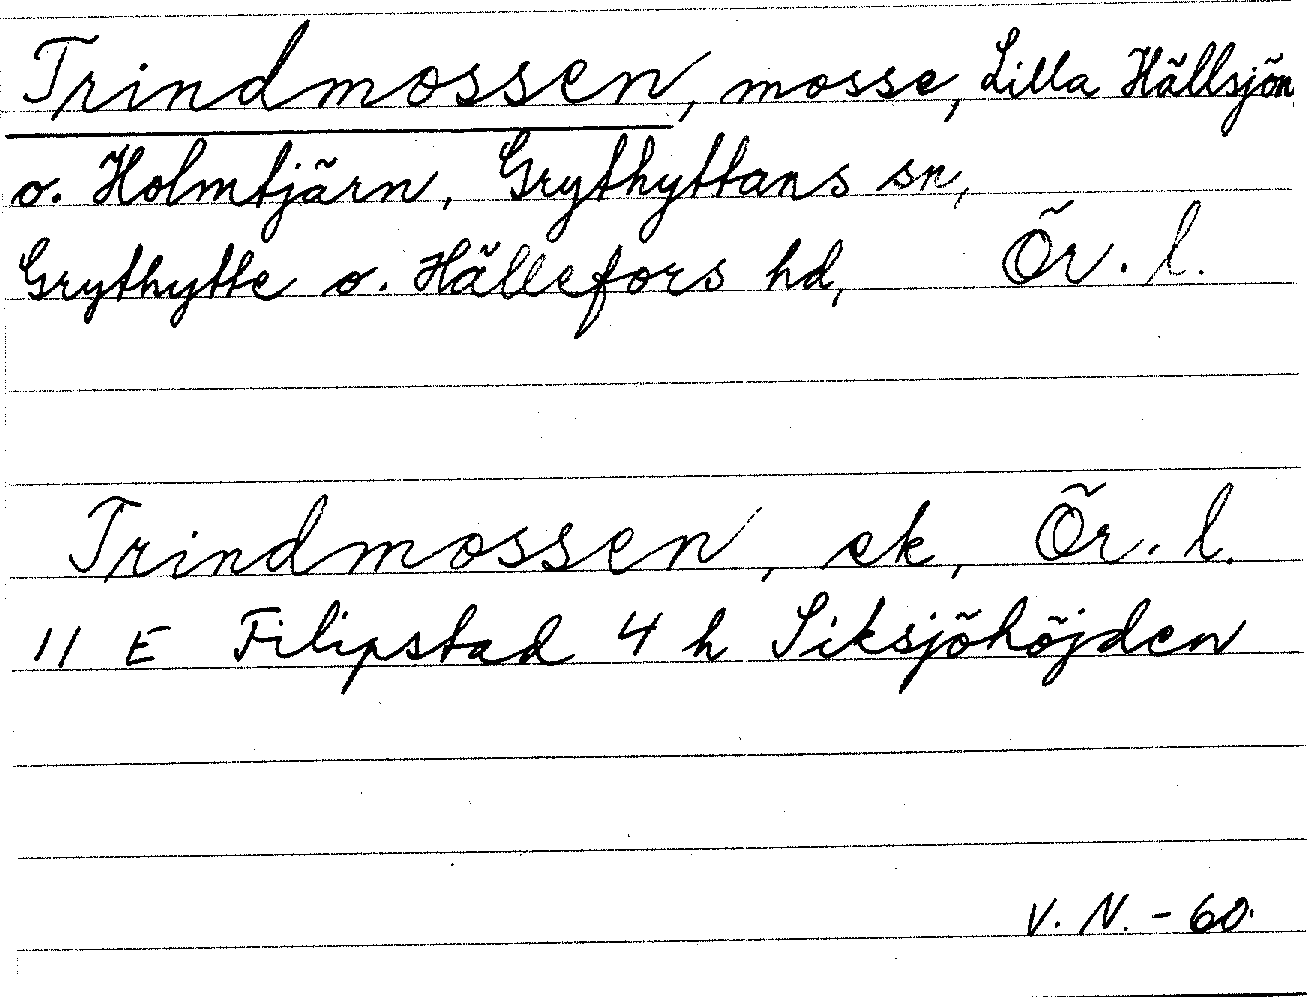 Trindmossen, mosse, Lilla Hällsjön
o. Holmtjärn, Grythyttans sn,
Grythytte o. Hällefors hd, Ör. l.
Trindmossen, ek, Ör. l.
11 E Filipstad 4 h Siksjöhöjden
V. N. - 60